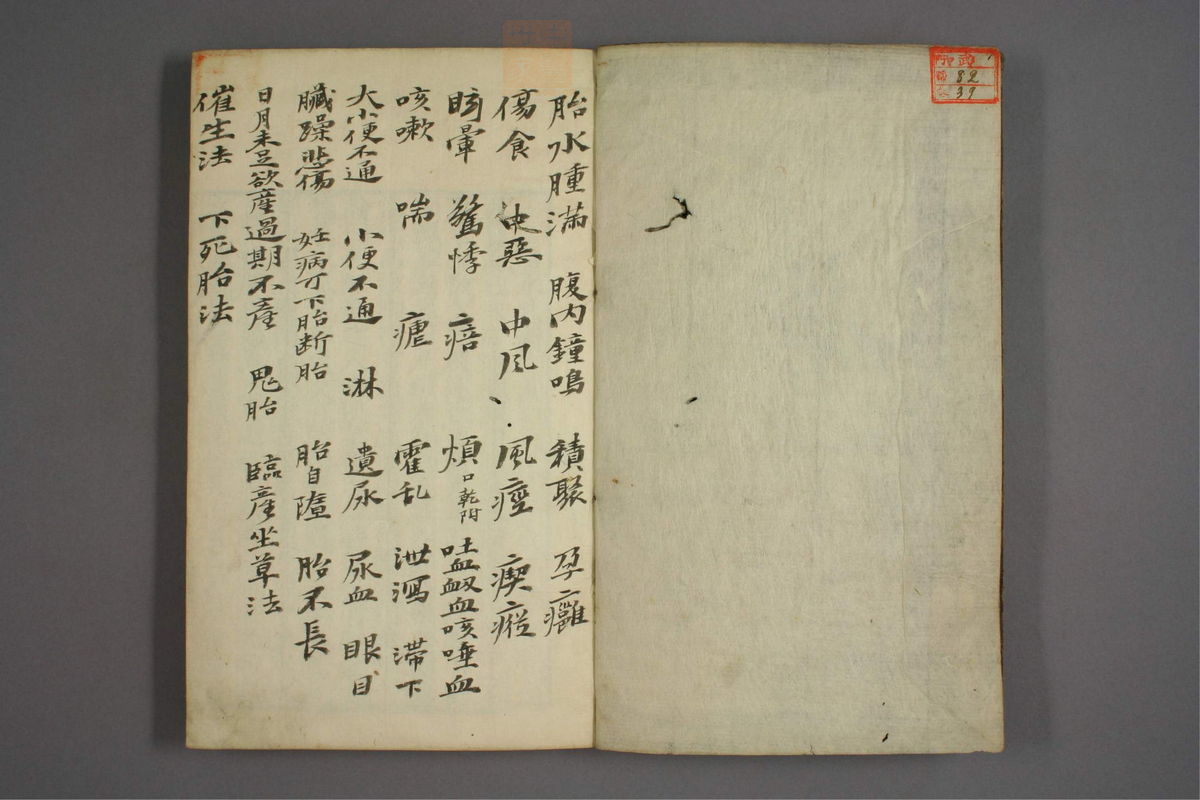 胎水腫満 腹内鐘鳴 積聚 孕癰
傷食 中惡 中风 風痙 瘈瘲
眩暈 驚悸 瘖 煩口乾附 吐血衂血咳唾血
咳嗽 喘 瘧 霍乱 泄瀉 滞下
大小便不通 小便不通 淋 遺尿 尿血 眼目
臓躁悲傷 妊病可下胎断胎 胎自墮 胎不長
日月未足欲産過期不産 鬼胎 臨産坐草法
催生法 下死胎法
82
39